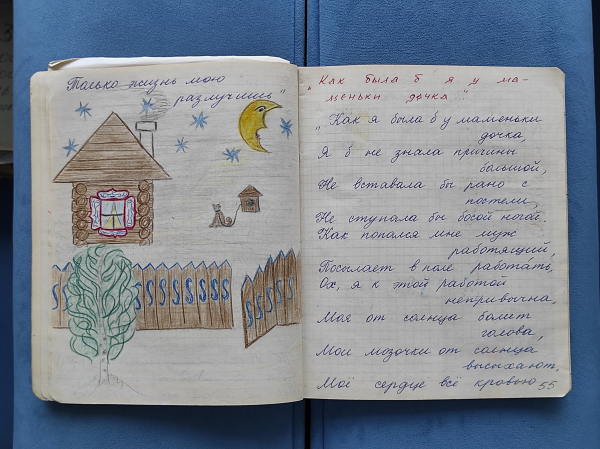 Только жизнь мою
разлучишь"
"Как была б я у ма-
меньки дочка..."
"Как я была б у маменьки
дочка,
Я б не знала причины
большой,
Не вставала бы рано с
постели,
Не ступала бы босой ногой.
Как попался мне муж
работящий,
Посылает в поле работать,
Ох, я к этой работой
непривычна,
Моя от солнца болит
голова,
Мои мозочки от солнца
высыхают,
Моё сердце всё кровью
55